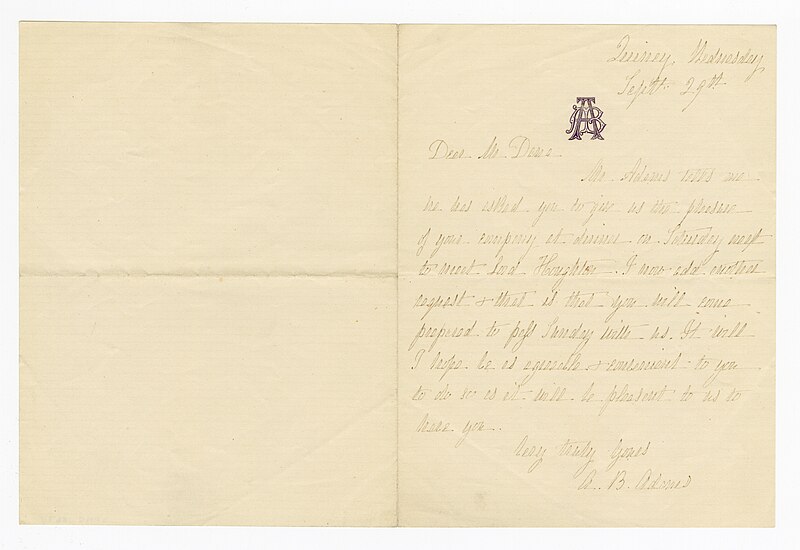 Quincy, Wednesday
Septr. 29th
Dear Mr. Dana
Mr. Adams tells me
he has asked you to give us the pleasure
of your company at dinner on Saturday next
to meet Lord Houghton. I now add another
request & that is that you will come
prepared to pass Sunday with us. It will
I hope be as agreeable & convenient to you
to do so as it will be pleasant to us to
have you.
Very truly yours
A. B. Adams